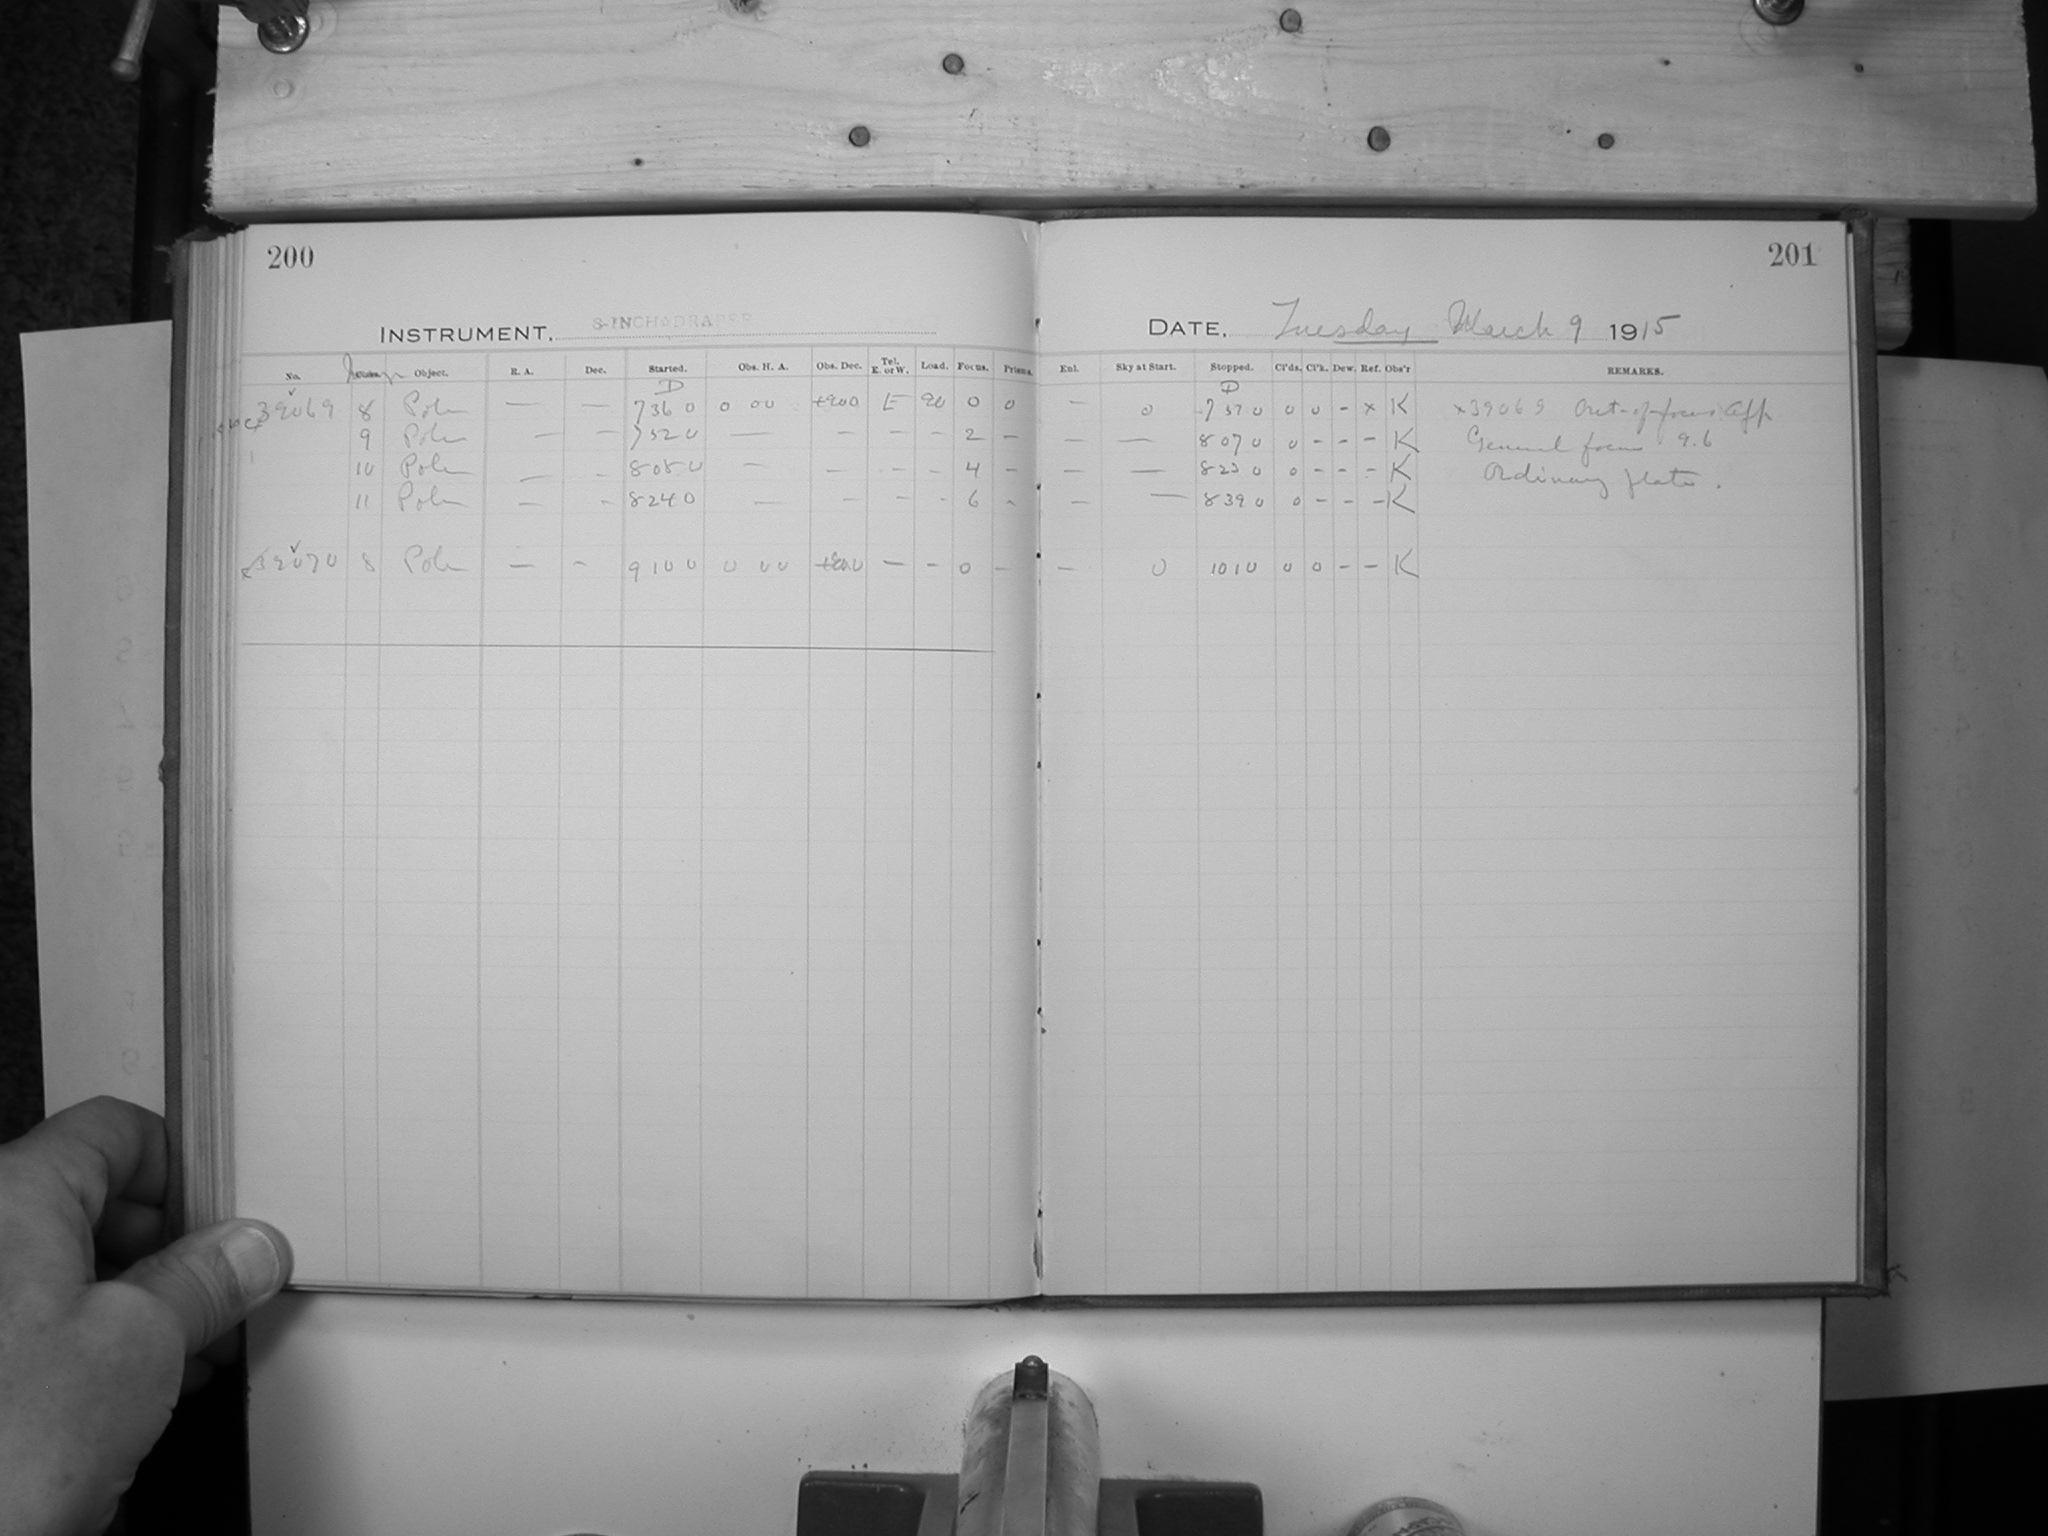 200
INSTRUMENT, 8-INCH DRAPER
No. Object. R. A. Dec. Started. Obs. H. A. Obs. Dec. Tel. E. or W. Load. Focus. Prisms.
D
39069 8 Pole — — 7 36 0 0 00 +900 E 90 0 0
9 Pole — — 7 52 0 — — — — 2 —
10 Pole — — 8 08 0 — — — — 4 —
11 Pole — — 8 24 0 — — — — 6 —
39070 8 Pole — — 9 10 0 0 00 — — 0 —
201
DATE, Tuesday March 9 1915
Enl. Sky at Start. Stopped. Cl'ds. Cl'k. Dew. Ref. Obs'r REMARKS.
D
— 0 7 51 0 0 0 – x K x39069 Out-of-focus
— — 8 07 0 0 – – – K General focus 9.6
— — 8 23 0 0 – – – K Ordinary plate.
— — 8 39 0 0 – – – K
— 0 10 10 0 0 – – K